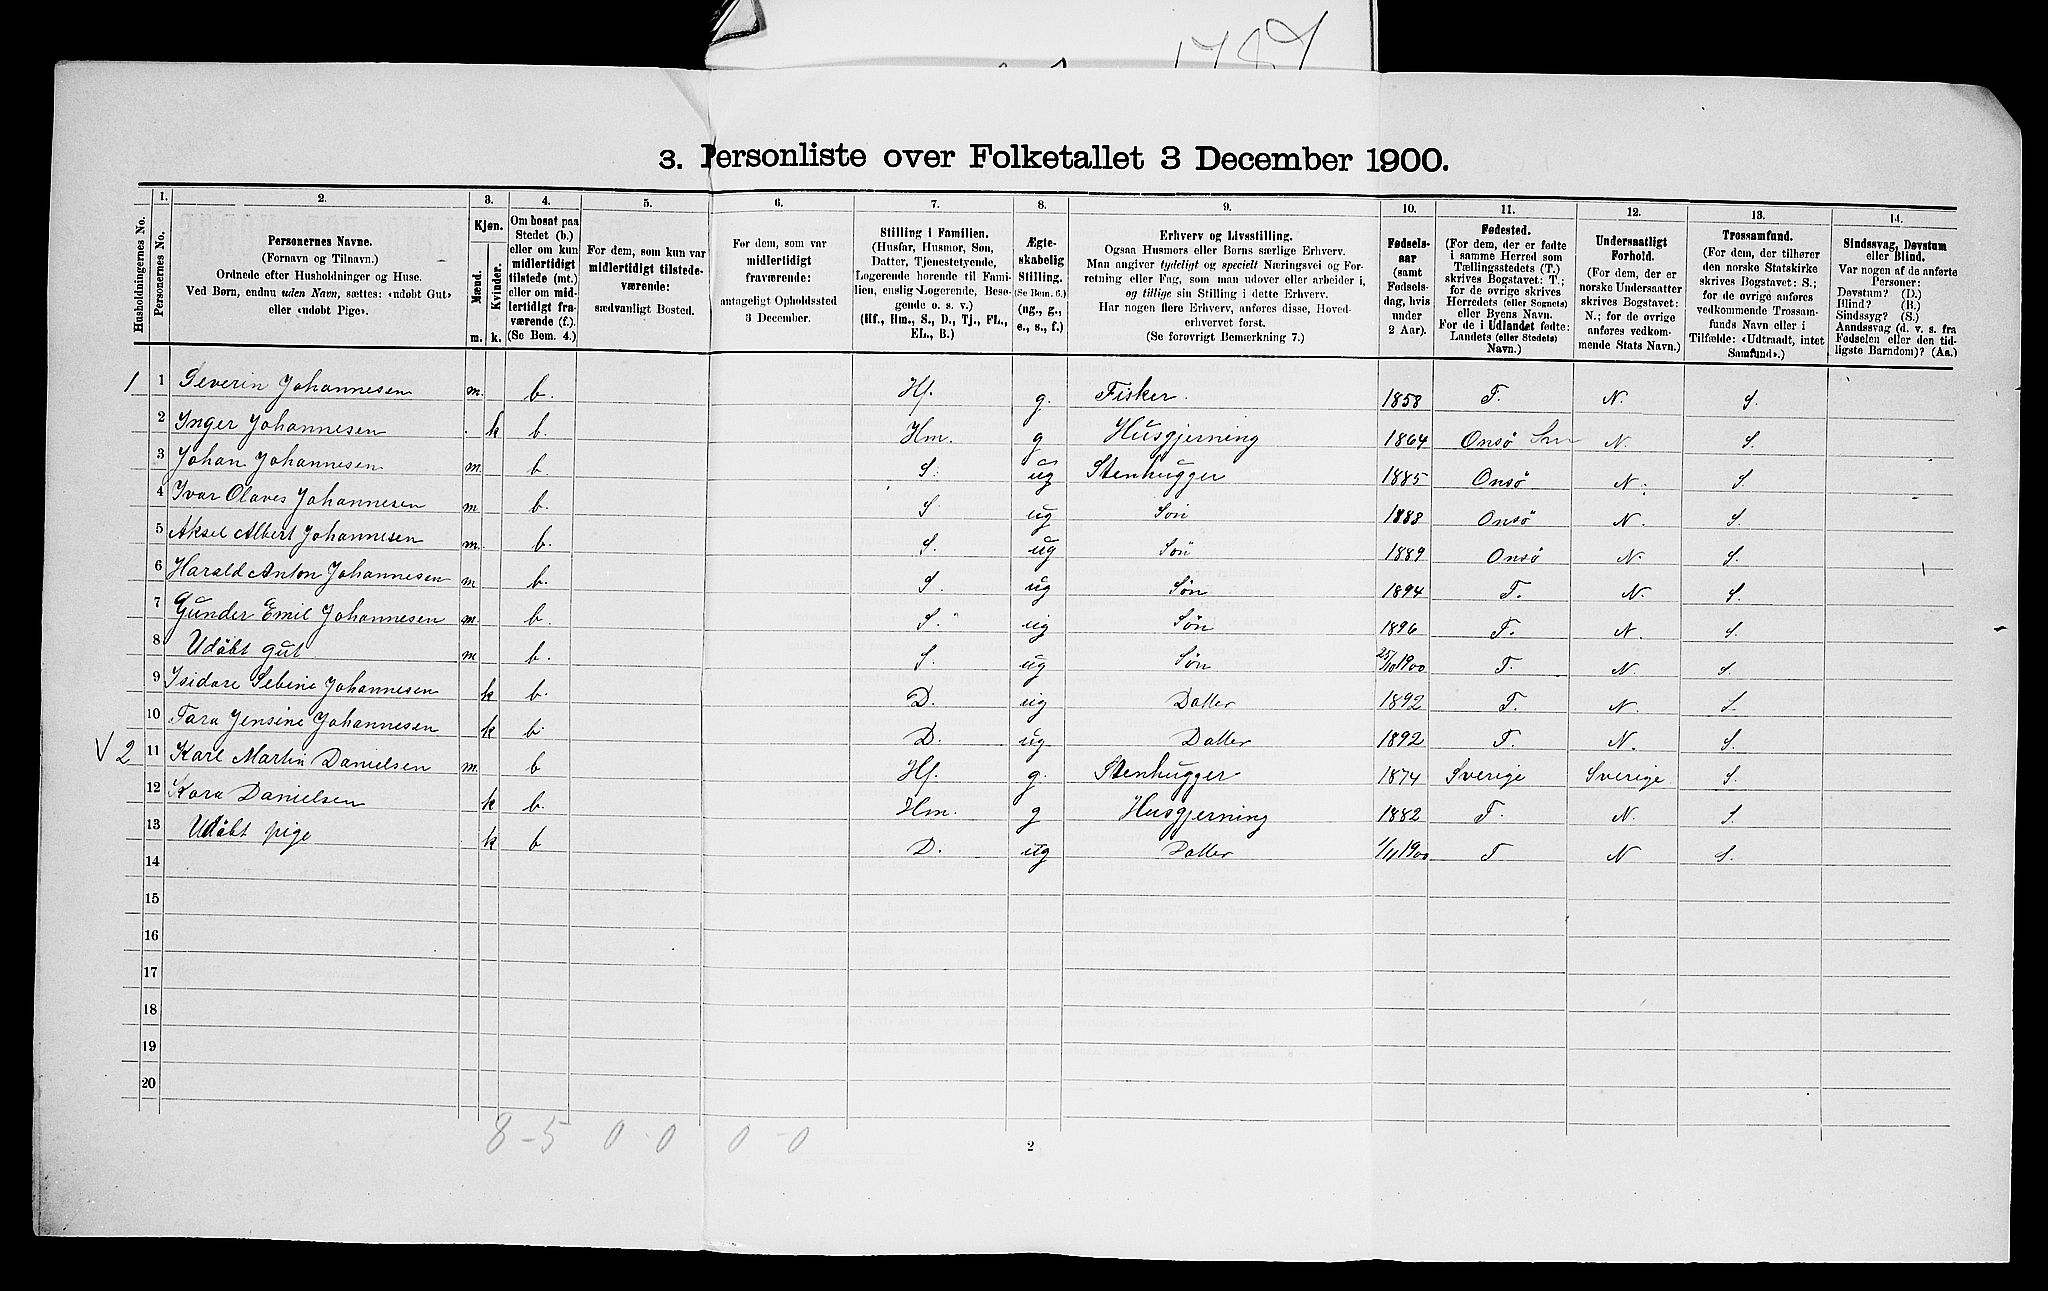 3. Personliste over Folketallet 3 December 1900.
Husholdningernes No.
1. Personernes No.
2. Personernes Navne. (Fornavn og Tilnavn.) Ordnede efter Husholdninger og Huse. Ved Børn, endnu uden Navn, sættes: «udøbt Gut» eller «udøbt Pige».
3. Kjøn. Mænd. m. Kvinder. k.
4. Om bosat paa Stedet (b.) eller om kun midlertidigt tilstede (mt.) eller om midlertidigt fraværende (f.) (Se Bem. 4.)
5. For dem, som kun var midlertidigt tilstedeværende: sædvanligt Bosted.
6. For dem, som var midlertidigt fraværende: antageligt Opholdssted 3 December.
7. Stilling i Familien. (Husfar, Husmor, Søn, Datter, Tjenestetyende, Logerende hørende til Familien, enslig Logerende, Besøgende o. s. v.) (Hf., Hm., S., D., Tj., FL., EL., B.)
8. Ægteskabelig Stilling. (Se Bem. 6.) (ug., g., e., s., f.)
9. Erhverv og Livsstilling. Ogsaa Husmors eller Børns særlige Erhverv. Man angiver tydeligt og specielt Næringsvei og Forretning eller Fag, som man udøver eller arbeider i, og tillige sin Stilling i dette Erhverv. Har nogen flere Erhverv, anføres disse, Hovederhvervet først. (Se forøvrigt Bemærkning 7.)
10. Fødselsaar (samt Fødselsdag, hvis under 2 Aar).
11. Fødested. (For dem, der er fødte i samme Herred som Tællingsstedets (T.) skrives Bogstavet: T.; for de øvrige skrives Herredets (eller Sognets) eller Byens Navn. For de i Udlandet fødte: Landets (eller Stedets) Navn.)
12. Undersaatligt Forhold. (For dem, der er norske Undersaatter skrives Bogstavet: N.; for de øvrige anføres vedkommende Stats Navn.)
13. Trossamfund. (For dem, der tilhører den norske Statskirke skrives Bogstavet: S.; for de øvrige anføres vedkommende Trossamfunds Navn eller i Tilfælde: «Udtraadt, intet Samfund».)
14. Sindssvag, Døvstum eller Blind. Var nogen af de anførte Personer: Døvstum? (D.) Blind? (B.) Sindssyg? (S.) Aandssvag (d. v. s. fra Fødselen eller den tidligste Barndom)? (Aa.)
1 1 Severin Johannesen m. b. Hf. g. Fisker. 1858 T. N. S.
2 Inger Johannesen k b. Hm. g Husgjerning 1864 Onsö Sm N. S.
3 Johan Johannesen m. b. S. ug Stenhugger 1885 Onsö N. S.
4 Ivar Olaves Johannesen m. b. S ug Sön 1888 Onsö N. S.
5 Aksel Albert Johannesen m. b. S. ug Sön 1889 Onsö N. S.
6 Harald Anton Johannesen m b. S. ug Sön 1894 T. N. S.
7 Gunder Emil Johannesen m. b. S. ug Sön 1896 T. N. S.
8 Udöbt gut m b. S. ug Sön 25/10 1900 T. N. S.
9 Isidore Sebine Johannesen k b. D. ug Datter 1892 T. N. S.
10 Tara Jensine Johannesen k b. D. ug Datter 1892 T. N. S.
V 2 11 Karl Martin Danielsen m. b Hf. g. Stenhugger 1874 Sverige Sverige S.
12 Kara Danielsen k b. Hm. g Husgjerning 1882 T. N. S.
13 Udöbt pige k b D. ug Datter 1/11 1900 T N S.
14
15
16
17
18
19
20
8-5 0-0 0-0
2